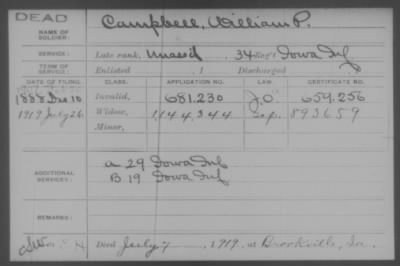 DEAD
NAME OF SOLDIER: Campbell, William P.
SERVICE: Late rank, Unassd 34 Reg't Iowa Inf
TERM OF SERVICE: Enlisted , 1 Discharged
DATE OF FILING. CLASS. APPLICATION NO. LAW. CERTIFICATE NO.
1888 Dec 10 Invalid, 681.230 J.O. 659.256
1919 July 26 Widow, 1,144,344 893659
Minor,
ADDITIONAL SERVICES: A 29 Iowa Inf
B. 19 Iowa Inf
REMARKS:
Died July 7 1919, at Brookville, Ia.